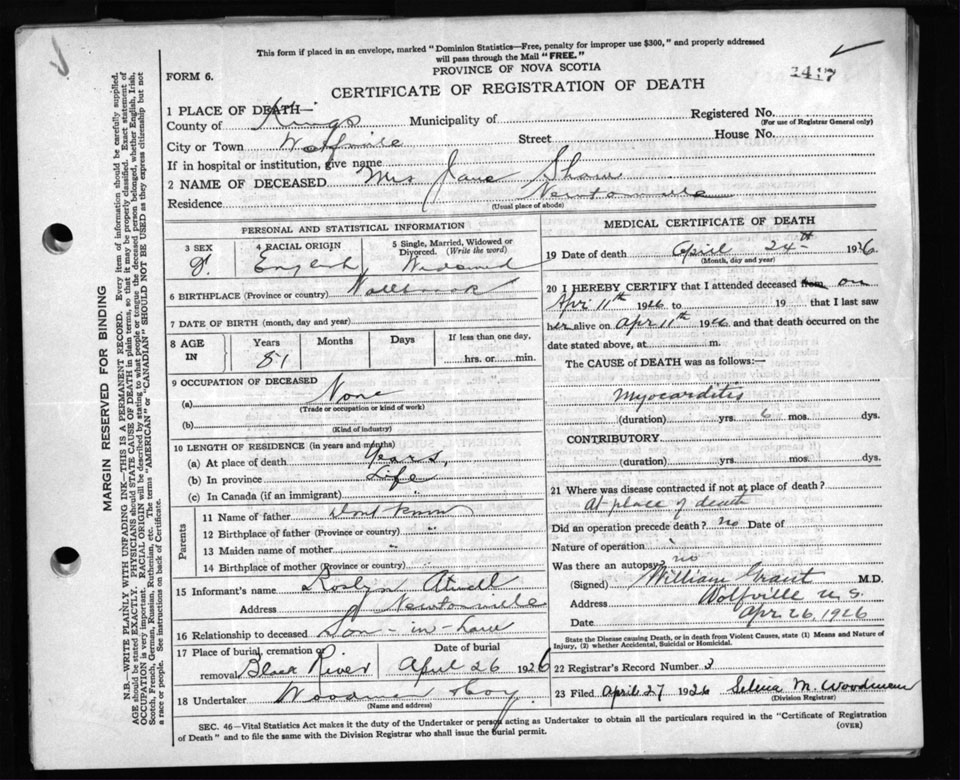 This form if placed in an envelope, marked "Dominion Statistics—Free, penalty for improper use $300," and properly addressed
will pass through the Mail "FREE."
PROVINCE OF NOVA SCOTIA
2417
FORM 6.
CERTIFICATE OF REGISTRATION OF DEATH
1 PLACE OF DEATH—
Registered No.
County of Kings Municipality of
(For use of Registrar General only)
City or Town Wolfville Street House No.
If in hospital or institution, give name
2 NAME OF DECEASED Mrs Jane Shaw
Residence Newtonville
(Usual place of abode)
PERSONAL AND STATISTICAL INFORMATION
3 SEX 4 RACIAL ORIGIN 5 Single, Married, Widowed or Divorced. (Write the word)
F. English Widowed
6 BIRTHPLACE (Province or country) Wallbrook
7 DATE OF BIRTH (month, day and year)
8 AGE IN Years Months Days If less than one day,
81 hrs. or min.
9 OCCUPATION OF DECEASED
(a) None
(Trade or occupation or kind of work)
(b)
(Kind of industry)
10 LENGTH OF RESIDENCE (in years and months)
(a) At place of death Years,
(b) In province Life
(c) In Canada (if an immigrant) "
Parents
11 Name of father Dont know
12 Birthplace of father (Province or country) "
13 Maiden name of mother "
14 Birthplace of mother (Province or country) "
15 Informant's name
Address Newtonville
16 Relationship to deceased Son-in-Law
17 Place of burial, cremation or removal Black River
Date of burial April 26 1926
18 Undertaker Woodman & Coy
(Name and address)
MEDICAL CERTIFICATE OF DEATH
19 Date of death April 24th 1926
(Month, day and year)
20 I HEREBY CERTIFY that I attended deceased from on
Apr 11th 1926 to 19 that I last saw
her alive on Apr 11th 1926 and that death occurred on the
date stated above, at m.
The CAUSE of DEATH was as follows:—
Myocarditis
(duration) yrs. 6 mos. dys.
CONTRIBUTORY
(duration) yrs. mos. dys.
21 Where was disease contracted if not at place of death?
At place of death
Did an operation precede death? no Date of
Nature of operation
Was there an autopsy? no
(Signed) William Grant M.D.
Address Wolfville N.S.
Date Apr 26, 1926
State the Disease causing Death, or in death from Violent Causes, state (1) Means and Nature of
Injury, (2) whether Accidental, Suicidal or Homicidal.
22 Registrar's Record Number 3
23 Filed April 27 1926 Selina M. Woodman
(Division Registrar)
SEC. 46—Vital Statistics Act makes it the duty of the Undertaker or person acting as Undertaker to obtain all the particulars required in the "Certificate of Registration
of Death" and to file the same with the Division Registrar who shall issue the burial permit.
(OVER)
MARGIN RESERVED FOR BINDING
N.B.—WRITE PLAINLY WITH UNFADING INK—THIS IS A PERMANENT RECORD. Every item of information should be carefully supplied.
AGE should be stated EXACTLY. PHYSICIANS should STATE CAUSE OF DEATH in plain terms, so that it may be properly classified. Exact statement of
OCCUPATION is very important. RACIAL ORIGIN will be described by stating to what people or tongue the deceased person belonged, whether English, Irish,
Scotch, French, German, Russian, Ruthenian, etc. The terms "AMERICAN" or "CANADIAN" SHOULD NOT BE USED as they express citizenship but not
a race or people. See instructions on back of Certificate.